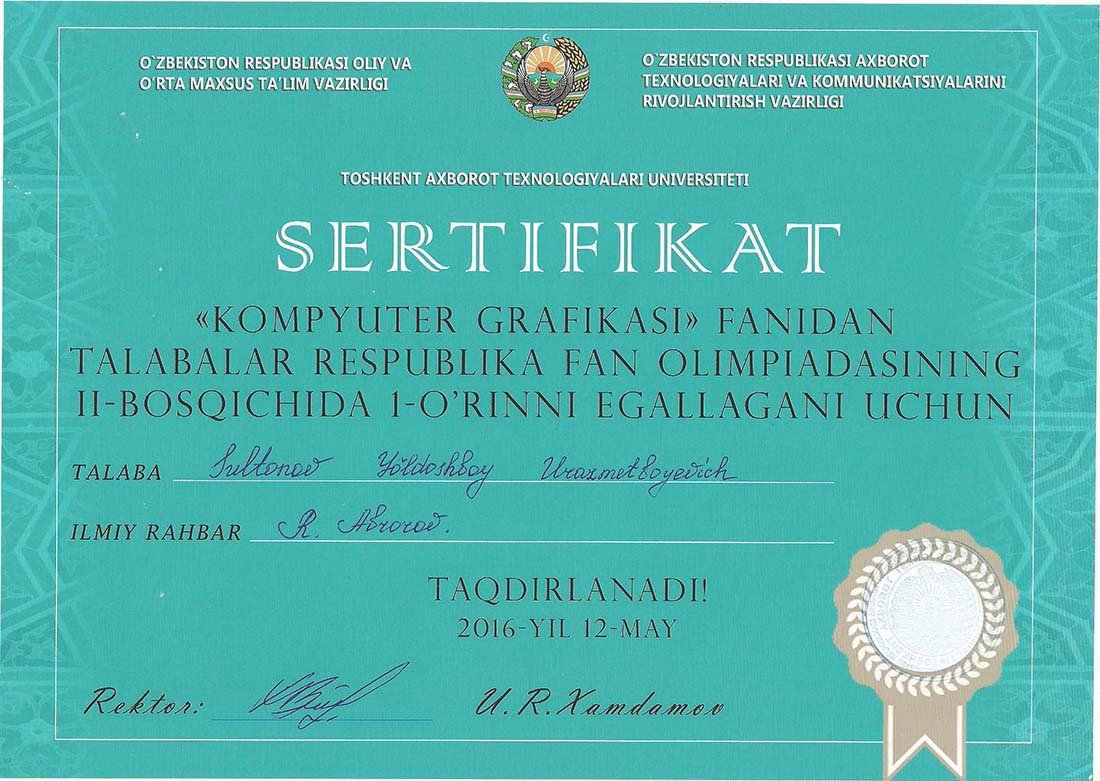 O`ZBEKISTON RESPUBLIKASI OLIY VA
O'RTA MAXSUS TA'LIM VAZIRLIGI
O`ZBEKISTON RESPUBLIKASI AXBOROT
TEXNOLOGIYALARI VA KOMMUNIKATSIYALARINI
RIVOJLANTIRISH VAZIRLIGI
TOSHKENT AXBOROT TEXNOLOGIYALARI UNIVERSITETI
SERTIFIKAT
«KOMPYUTER GRAFIKASI» FANIDAN
TALABALAR RESPUBLIKA FAN OLIMPIADASINING
II-BOSQICHIDA 1-O'RINNI EGALLAGANI UCHUN
TALABA Sultonov Yõldoshboy Urazmetboyevich
ILMIY RAHBAR R. Abrorov.
TAQDIRLANADI!
2016-YIL 12-MAY
Rektor: U. R. Xamdamov